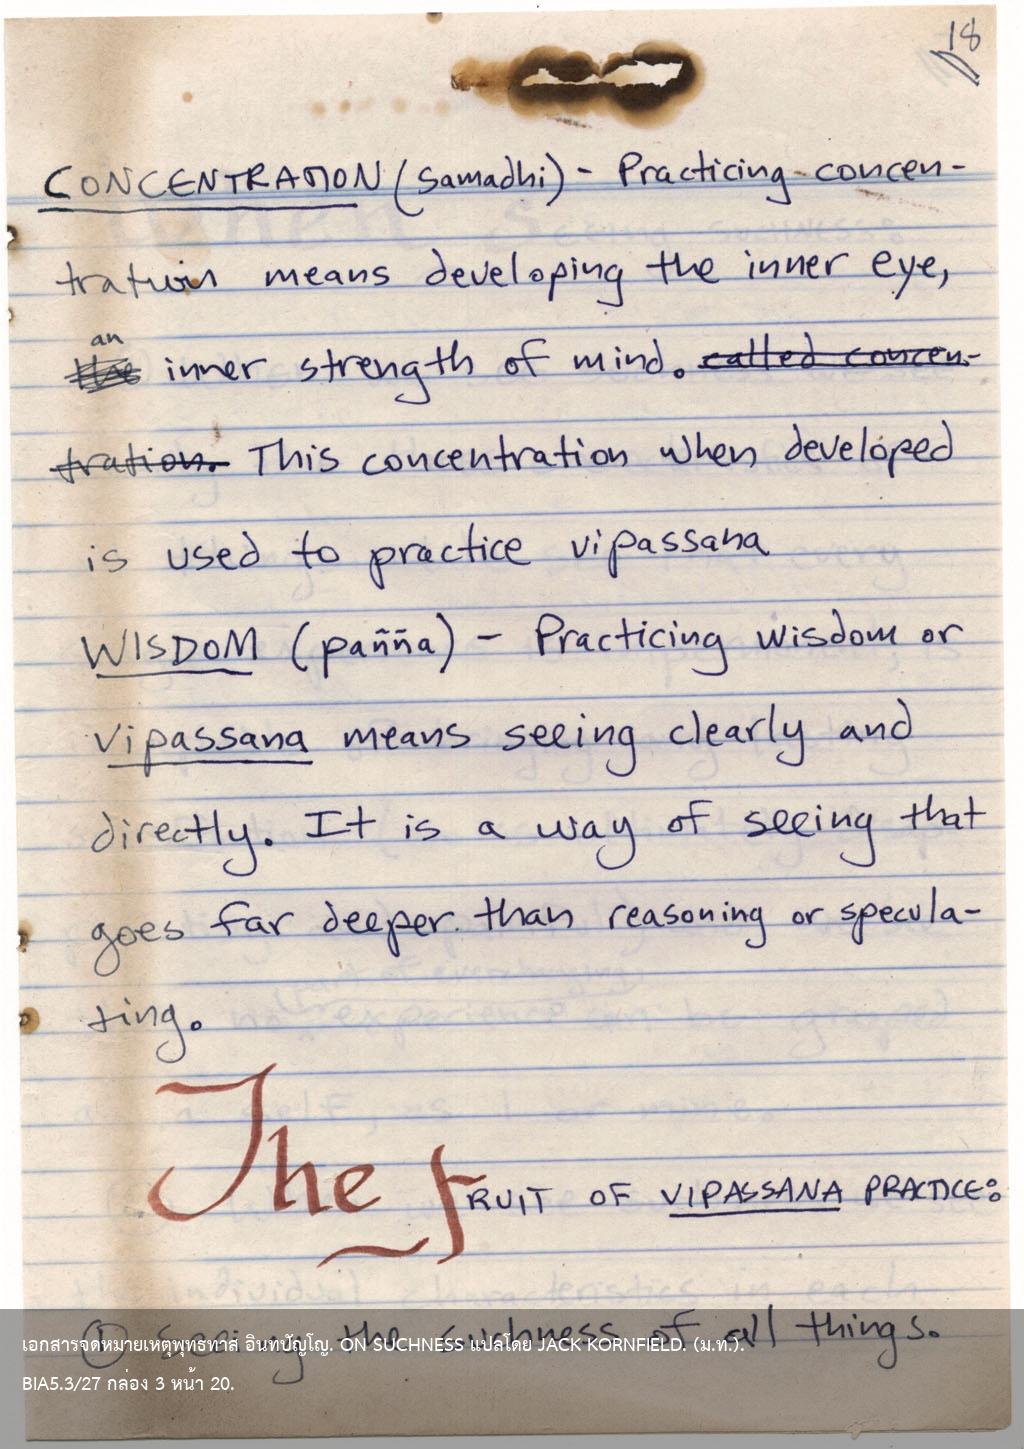 18
CONCENTRATION (samadhi) - Practicing concen-
tration means developing the inner eye,
an
the inner strength of mind. called concen-
tration. This concentration when developed
is used to practice vipassana
WISDOM (pañña) - Practicing wisdom or
vipassana means seeing clearly and
directly. It is a way of seeing that
goes far deeper than reasoning or specula-
ting.
The FRUIT OF VIPASSANA PRACTICE:
① seeing the suchness of all things.
เอกสารจดหมายเหตุพุทธทาส อินทปัญโญ. ON SUCHNESS แปลโดย JACK KORNFIELD. (ม.ท.).
BIA5.3/27 กล่อง 3 หน้า 20.